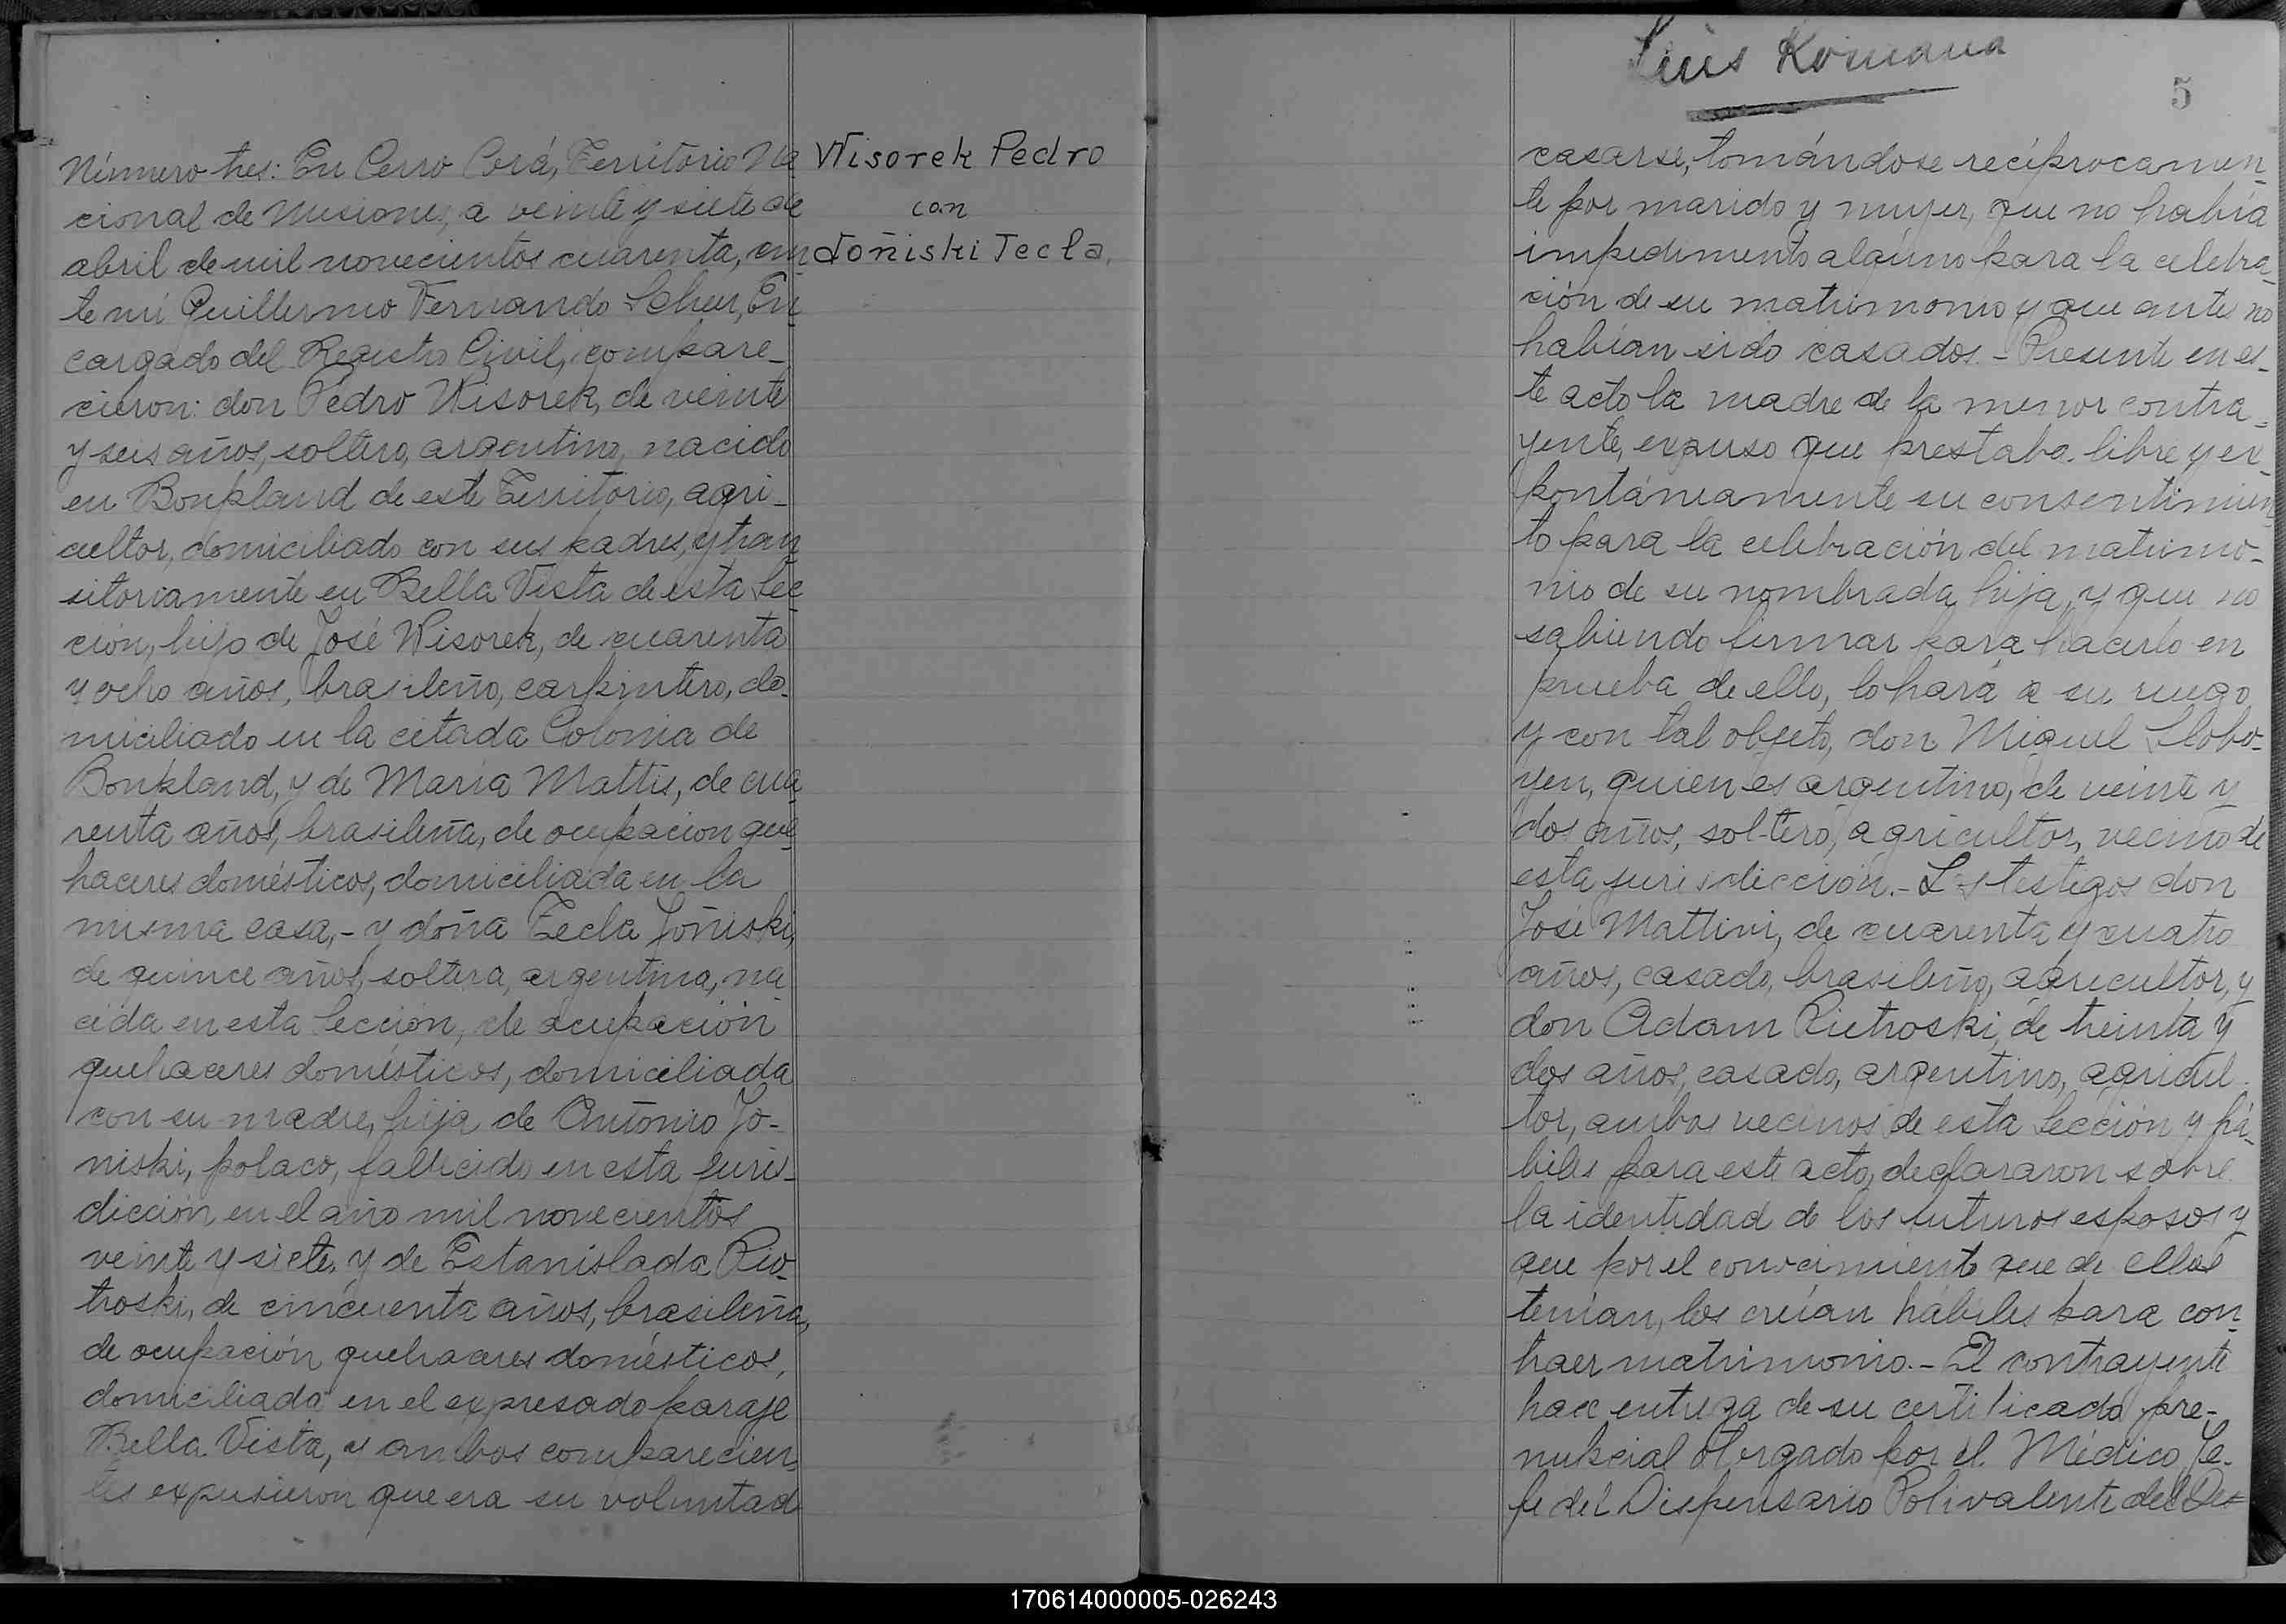 Número tres: En Cerro Corá, Territorio Na
cional de Misiones, a veinte y siete de
abril de mil novecientos cuarenta, an
te mí Guillermo Fernando Scheer, En
cargado del Registro Civil, compare-
cieron: don Pedro Wisorek, de veinte
y seis años, soltero, argentino, nacido
en Bonpland de este Territorio, agri-
cultor, domiciliado con sus padres, y tran
sitoriamente en Bella Vista de esta Sec
ción, hijo de José Wisorek, de cuarenta
y ocho años, brasileño, carpintero, do-
miciliado en la citada Colonia de
Bonpland, y de María Mattis, de cua
renta años, brasileña, de ocupación que
haceres domésticos, domiciliada en la
misma casa,- y doña Tecla Joñiski,
de quince años, soltera, argentina, na
cida en esta Sección, de ocupación
quehaceres domésticos, domiciliada
con su madre, hija de Antonio Jo-
niski, polaco, fallecido en esta juris-
dicción en el año mil novecientos
veinte y siete, y de Estanislada Rio-
troski, de cincuenta años, brasileña,
de ocupación quehaceres domésticos,
domiciliada en el expresado paraje
Bella Vista, y ambos comparecien
tes expusieron que era su voluntad
Wisorek Pedro
con
Joñiski Tecla.
Luis Romana
5
casarse, tomándose recíprocamen
te por marido y mujer, que no había
impedimento alguno para la celebra
ción de su matrimonio y que antes no
habían sido casados.- Presente en es-
te acto la madre de la menor contra-
yente, expuso que prestaba libre y es-
pontáneamente su consentimien
to para la celebración del matrimo-
nio de su nombrada hija, y que no
sabiendo firmar para hacerlo en
prueba de ello, lo hará a su ruego
y con tal objeto, don Miguel Slobo-
yen, quien es argentino, de veinte y
dos años, soltero, agricultor, vecino de
esta jurisdicción.- Los testigos don
José Mattivi, de cuarenta y cuatro
años, casado, brasileño, agricultor, y
don Adam Rietroski, de treinta y
dos años, casado, argentino, agricul
tor, ambos vecinos de esta Sección y há-
biles para este acto, declararon sobre
la identidad de los futuros esposos y
que por el conocimiento que de ellos
tenían, los creían hábiles para con
traer matrimonio.- El contrayente
hace entrega de su certificado pre-
nupcial otorgado por el Médico Je-
fe del Dispensario Polivalente del De-
170614000005-026243